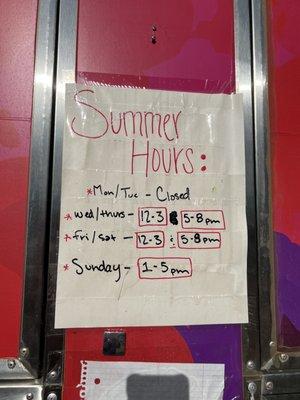 Summer
Hours:
*Mon/Tue - Closed
*wed/thurs - 12-3 & 5-8pm
*fri/sat - 12-3 & 5-8pm
*Sunday - 1-5pm